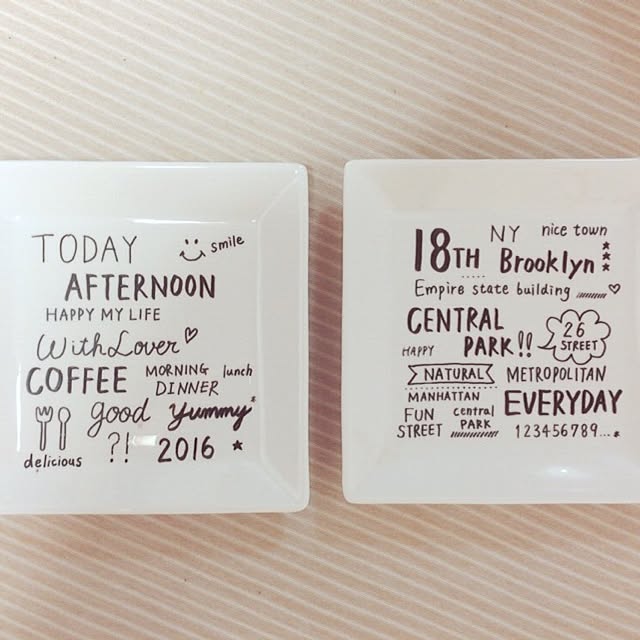 TODAY smile
AFTERNOON
HAPPY MY LIFE
With Lover
COFFEE MORNING lunch
DINNER
good Yummy
delicious ?! 2016
18TH NY nice town
Brooklyn
Empire state building
CENTRAL
PARK!! 26
STREET
HAPPY
NATURAL METROPOLITAN
MANHATTAN EVERYDAY
FUN central
STREET PARK 123456789...